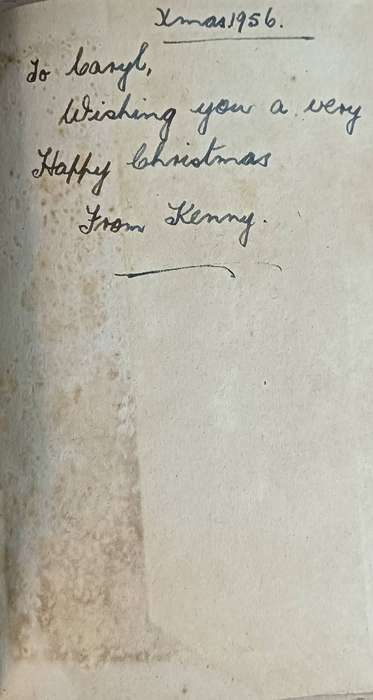 Xmas 1956.
To Caryl,
Wishing you a very
Happy Christmas
From Kenny.